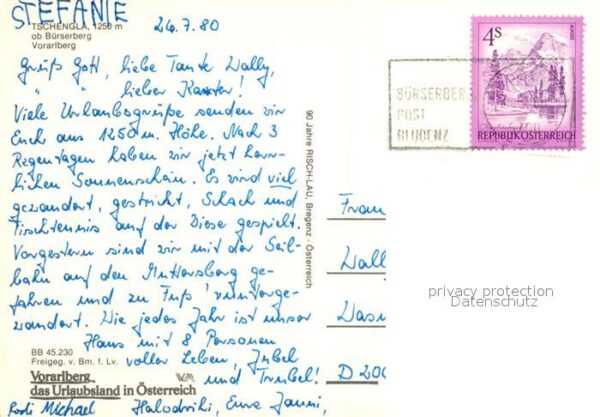 STEFANIE
TSCHENGLA, 1250 m
ob Bürserberg
Vorarlberg
26.7.80
Grüß Gott, liebe Tante Wally,
" " lieber Karster!
Viele Urlaubsgrüße senden wir
Euch aus 1250 m. Höhe. Nach 3
Regentagen haben wir jetzt herr-
lichen Sonnenschein. Es wird viel
gewandert, gestrickt, Schach und
Tischtennis auf der Diese gespielt.
Vorgestern sind wir mit der Seil-
bahn auf den Muttersberg ge-
fahren und zu Fuß runterge-
wandert. Wie jedes Jahr ist unser
Haus mit 8 Personen
voller Leben, Jubel
und Trubel!
Michael Eure Janni,
BB 45.230
Freigeg. v. Bm. f. Lv.
Vorarlberg
das Urlaubsland in Österreich
90 Jahre RISCH-LAU, Bregenz - Österreich
4S
BÜRSERBERG
POST
BLUDENZ
REPUBLIK ÖSTERREICH
Frau
Wally
D 200
privacy protection
Datenschutz